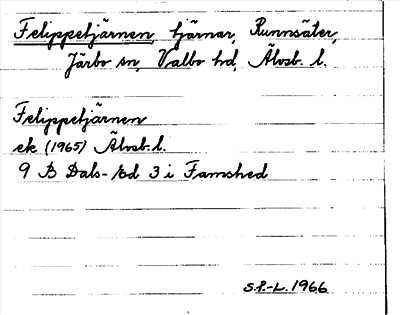 Felippetjärnen, tjärnar, Runnsäter,
Järbo sn, Valbo hd, Älvsb. l.
Felippetjärnen
ek (1965) Älvsb. l.
9 B Dals-Ed 3 i Famshed
S.P.-L. 1966